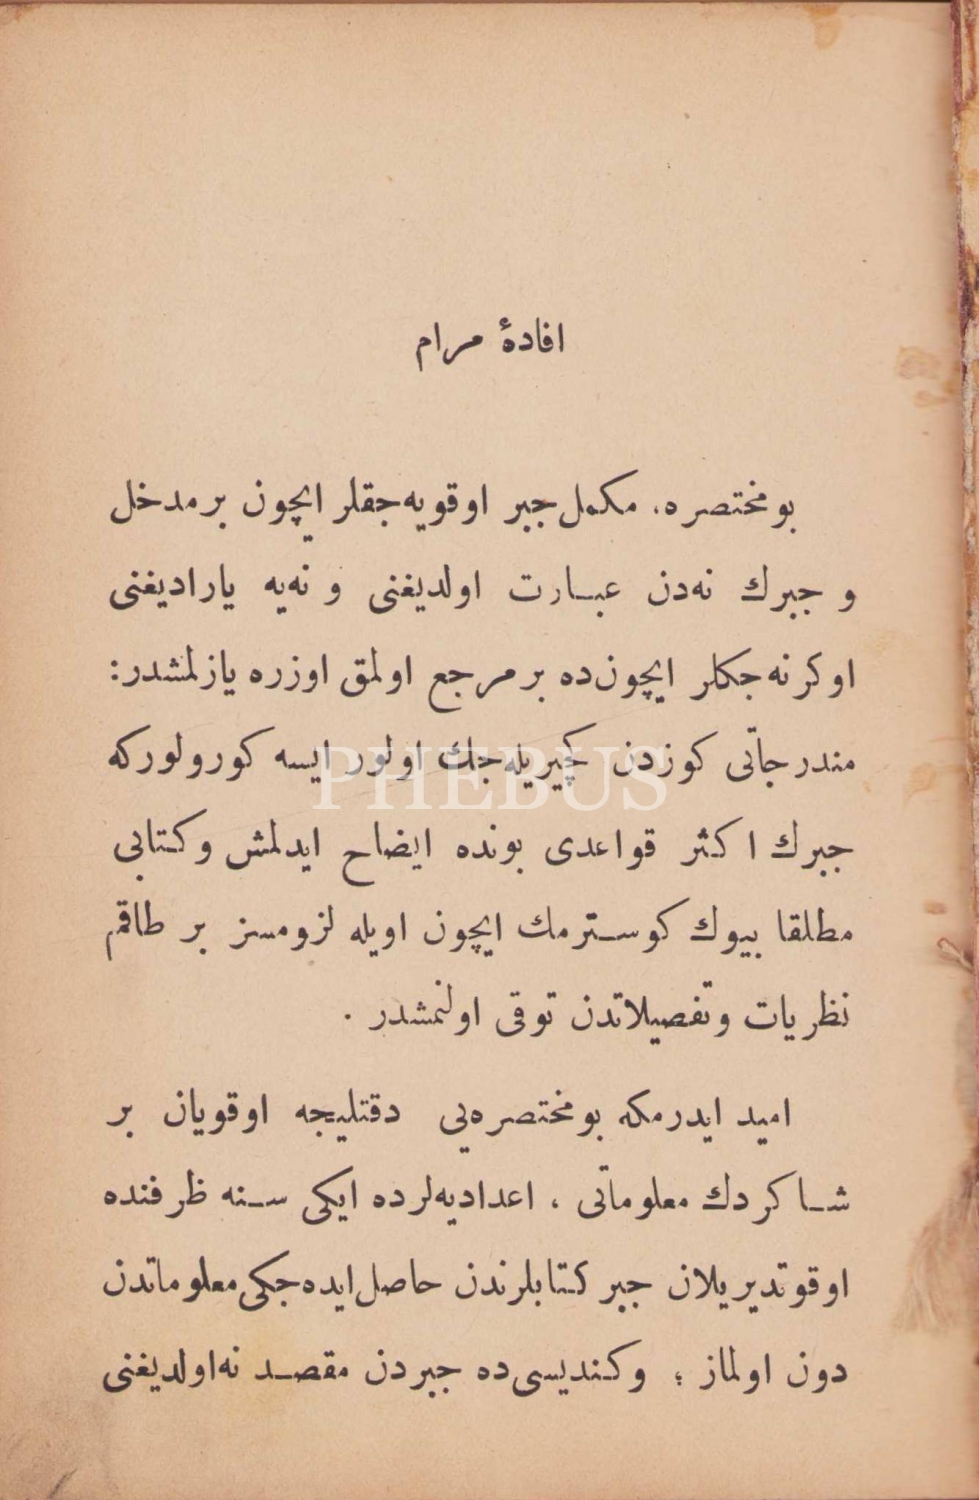 افادۀ مرام
بو مختصره، مكمل جبر اوقويه‌جقلر ايچون بر مدخل
و جبرك نه‌دن عبارت اولديغنى و نه‌يه ياراديغنى
اوكرنه‌جكلر ايچون‌ده بر مرجع اولمق اوزره يازلمشدر:
مندرجاتى كوزدن كچيريله‌جك اولور ايسه كورولوركه
جبرك اكثر قواعدى بونده ايضاح ايدلمش وكتابى
مطلقا بيوك كوسترمك ايچون اويله لزومسز بر طاقم
نظريات وتفصيلاتدن توقى اولنمشدر .
اميد ايدرمكه بو مختصره‌يى دقتليجه اوقويان بر
شاكردك معلوماتى ، اعداديه‌لرده ايكى سنه ظرفنده
اوقوتديريلان جبر كتابلرندن حاصل ايده‌جكى معلوماتدن
دون اولماز ؛ وكنديسى‌ده جبردن مقصد نه‌اولديغنى
PHEBUS